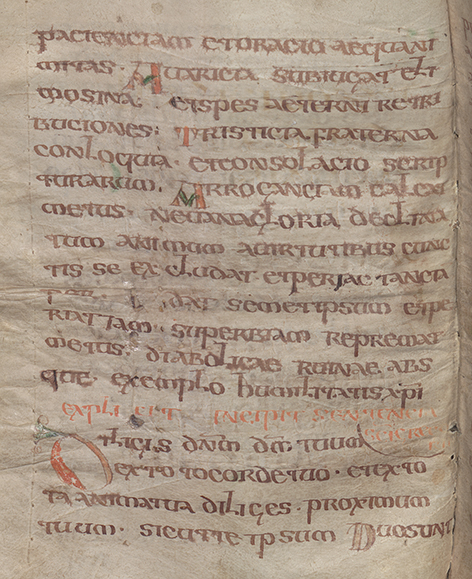 pacienciam et oracio aequani
mitas · Auaricia subiugat eli
mosina; et spes aeterni retri
buciones; Tristicia, fraterna
conloquia · et consolacio scrip
turarum. Arroganciam calcas
metus · Ne uana gloria declina
tum animum a uirtutibus cunc
tis se excludat et per jactancia
dat semetipsum et pe
riat iam · superbiam repremat
metus · diabolicae ruinae abs
que exemplo humilitatis xpi
explicit incipit sentencia
Diligis dnm dm tuum
ex toto corde tuo · et ex to
ta anima tua diliges · proximum
tuum · sicut te ipsum Duo sunt